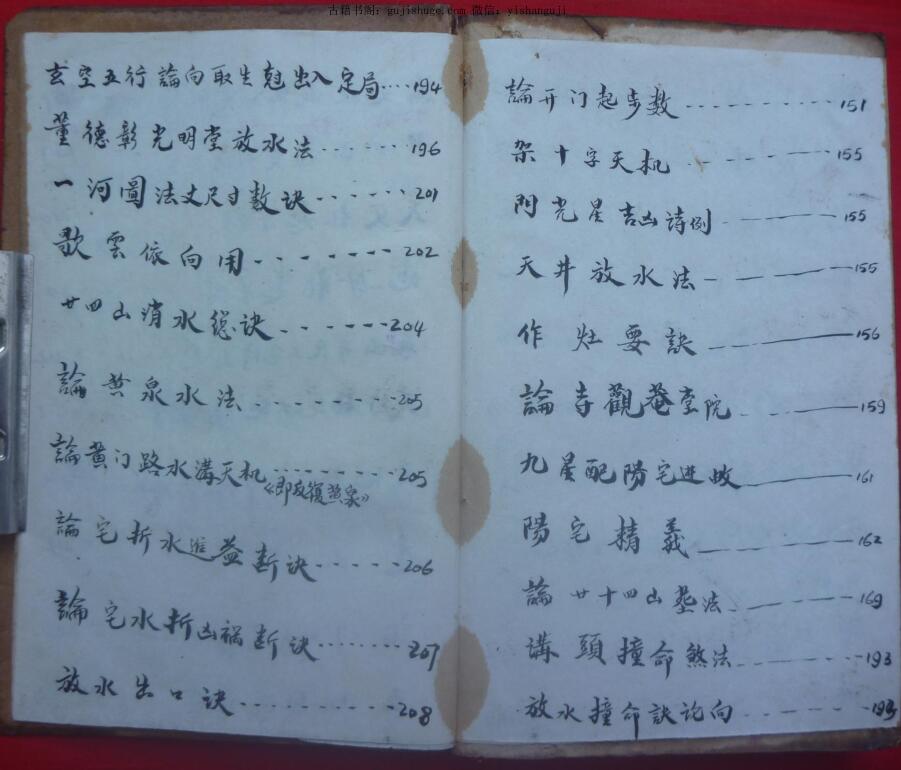 古籍书阁：gujishuge.com 微信：yishanguji
玄空五行論向取生尅出入定局....194
董德彰光明堂放水法......196
一河圖法丈尺寸数诀.......201
歌雲依向用.......202
廿四山消水總诀.......204
論黄泉水法......205
論黄门路水溝天机.........205
《即反復黄泉》
論宅折水進益断诀.....206
論宅水折凶禍断诀......207
放水出口诀..........208
論开门起步数..........151
架十字天机-----155
門光星吉凶诗例----155
天井放水法-----155
作灶要訣-----156
論寺觀菴堂院----159
九星配陽宅进 161
陽宅精義-----162
論廿十四山塟法----169
溝頭撞命煞法-----193
放水撞命訣论向-------193